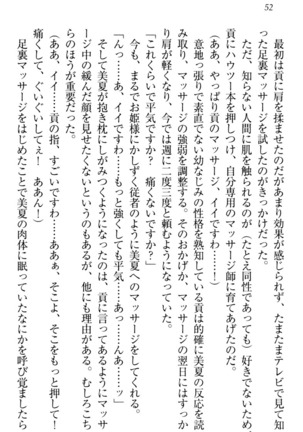 52
最初は貢に肩を揉ませたのだがあまり効果が感じられず、たまたまテレビで見て知
った足裏マッサージを試したのがきっかけだった。
ただ、知らない人間に肌を触られるのが（たとえ同性であっても）好きでないため、
貢にハウツー本を押しつけ、自分専用のマッサージ師に育てあげたのだ。
「ああ、やっぱり貢のマッサージ、イイですわ……」
意地っ張りで素直でない幼なじみの性格を熟知している貢は的確に美夏の反応を読
み取り、マッサージの強弱を調整する。そのおかげか、マッサージの翌日にはすっか
り肩が軽くなり、今では週に二度三度と頼むようになっていた。
「これくらいで平気ですか？　痛くないですか？」
今も、まるでお姫様にかしずく従者のように美夏へのマッサージをしてくれる。
「んっ……あ、イイですわ……もっと強くしても平気……あっ……んあ……ッ」
そして美夏が抱き枕にしがみつくようになったのは、貢に言ってあるようにマッサ
ージ中の緩んだ顔を見せたくないというのもあるが、他にも理由がある。むしろこち
らのほうが重要だった。
「ああ、イイ……貢の指、すごいですわ……ああぁ、そこよ、そこをもっと押して！
痛くして、ぐいぐいしてぇ！　ああん！」
足裏マッサージをはじめたことで美夏の肉体に眠っていたなにかを呼び覚ましたら